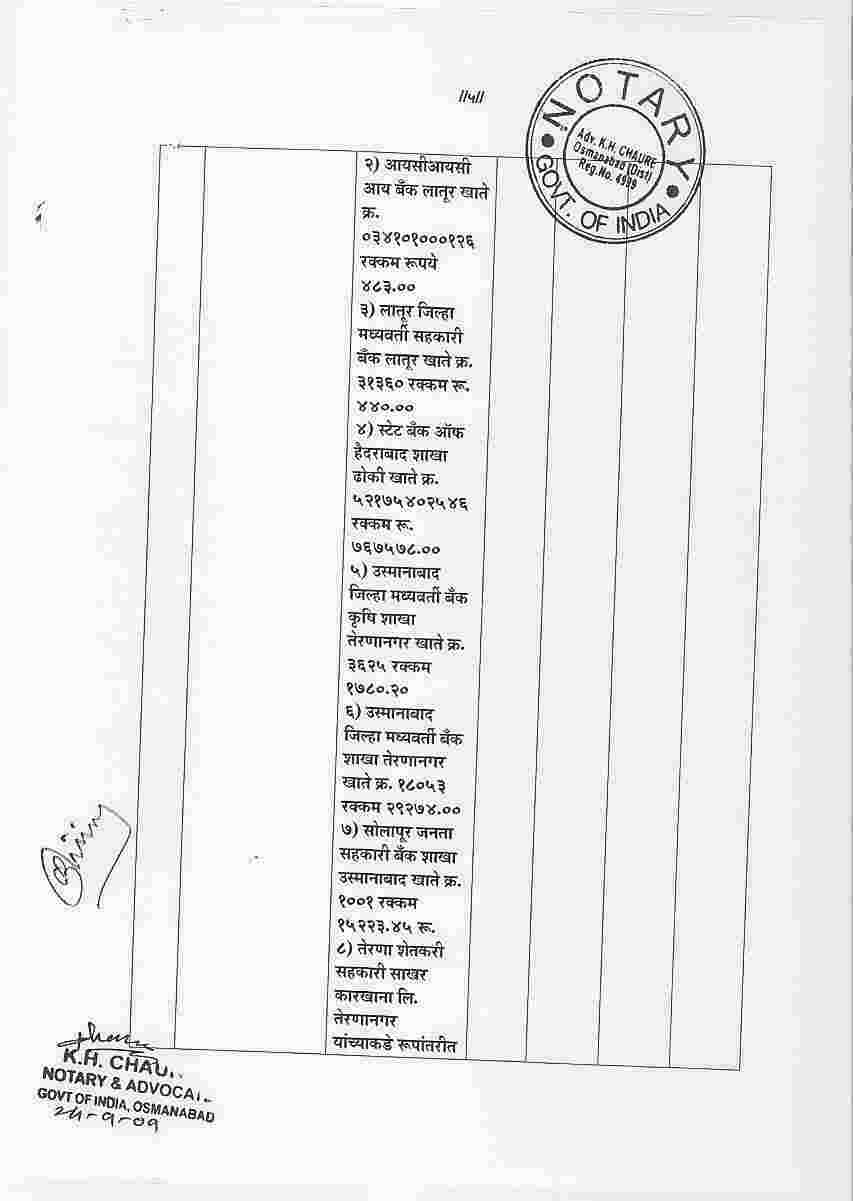 //५//
NOTARY
Adv. K.H. CHAURE
Osmanabad (Dist)
Reg.No. 4999
GOVT. OF INDIA
२) आयसीआयसी
आय बँक लातूर खाते
क्र.
०३४१०१०००१२६
रक्कम रूपये
४८३.००
३) लातूर जिल्हा
मध्यवर्ती सहकारी
बँक लातूर खाते क्र.
३१३६० रक्कम रू.
४४०.००
४) स्टेट बँक ऑफ
हैदराबाद शाखा
ढोकी खाते क्र.
५२१७५४०२५४६
रक्कम रू.
७६७५७८.००
५) उस्मानाबाद
जिल्हा मध्यवर्ती बँक
कृषि शाखा
तेरणानगर खाते क्र.
३६२५ रक्कम
१७८०.२०
६) उस्मानाबाद
जिल्हा मध्यवर्ती बँक
शाखा तेरणानगर
खाते क्र. १८०५३
रक्कम २९२७४.००
७) सोलापूर जनता
सहकारी बँक शाखा
उस्मानाबाद खाते क्र.
१००१ रक्कम
१५२२३.४५ रू.
८) तेरणा शेतकरी
सहकारी साखर
कारखाना लि.
तेरणानगर
यांच्याकडे रूपांतरीत
K.H. CHAU
NOTARY & ADVOCA
GOVT OF INDIA, OSMANABAD
24-9-09